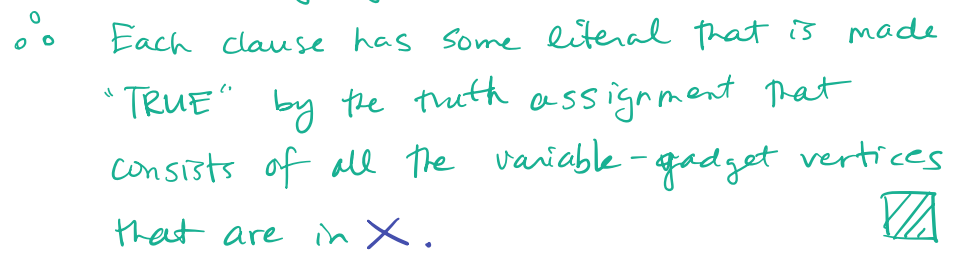 ∴ Each clause has some literal that is made
"TRUE" by the truth assignment that
consists of all the variable-gadget vertices
that are in X.